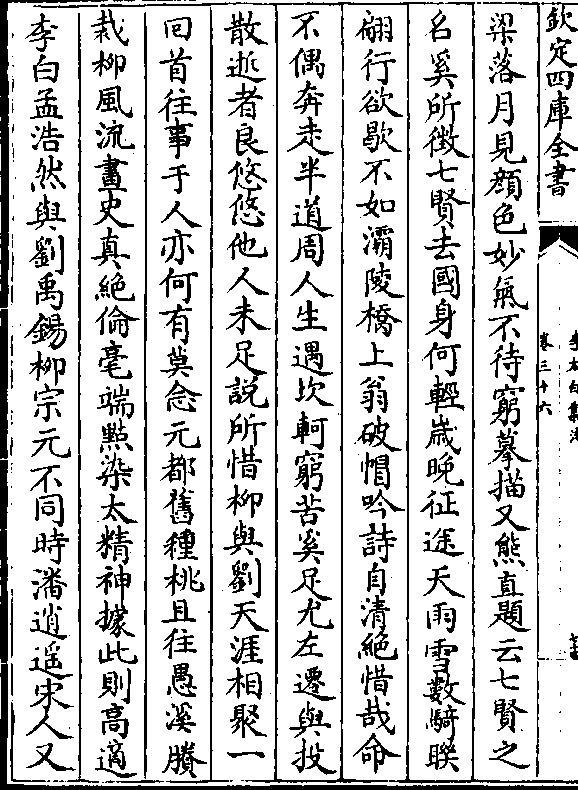 欽定四庫全書
李太白集注
卷三十六
梁落月見顔色妙氣不待窮摹描又熊直題云七賢之
名奚所徴七賢去國身何輕嵗晚征途天雨雪數騎聨
翩行欲歇不如灞陵橋上翁破帽吟詩自清絶惜哉命
不偶奔走半道周人生遇坎軻窮苦奚足尤左遷與投
散逝者良悠悠他人未足説所惜柳與劉天涯相聚一
回首往事于人亦何有莫念元都舊種桃且往愚溪賸
栽柳風流畫史真絶倫毫端㸃染太精神據此則高適
李白孟浩然與劉禹錫柳宗元不同時潘逍遥宋人又